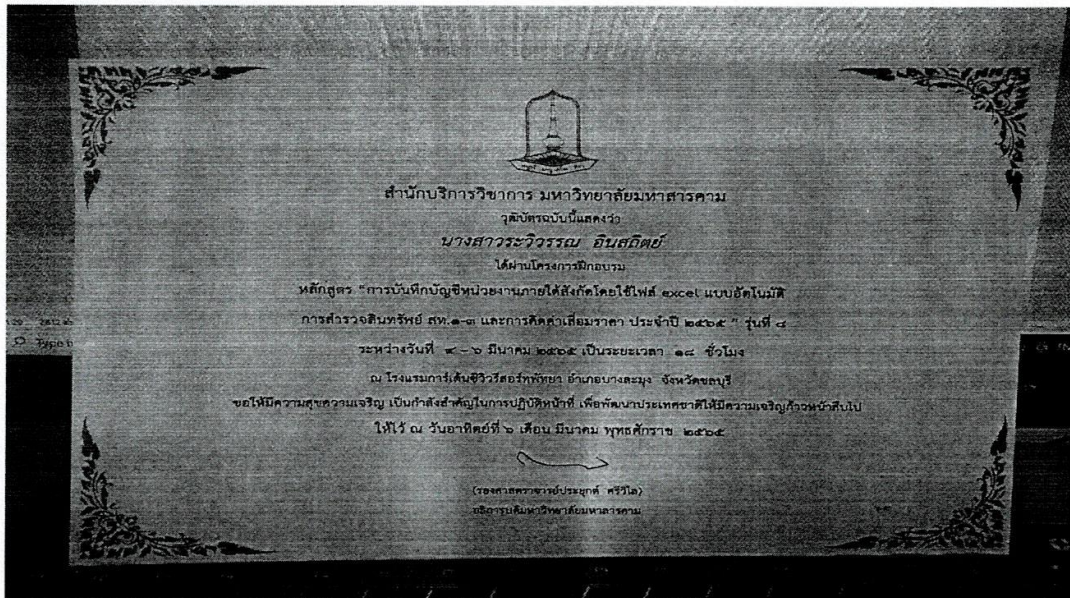 สำนักบริการวิชาการ มหาวิทยาลัยมหาสารคาม
วุฒิบัตรฉบับนี้แสดงว่า
นางสาวระวิวรรณ อินสถิตย์
ได้ผ่านโครงการฝึกอบรม
หลักสูตร "การบันทึกบัญชีหน่วยงานภายใต้สังกัดโดยใช้ไฟล์ excel แบบอัตโนมัติ
การสำรวจสินทรัพย์ สท.๑-๓ และการคิดค่าเสื่อมราคา ประจำปี ๒๕๖๕ " รุ่นที่ ๘
ระหว่างวันที่ ๔ - ๖ มีนาคม ๒๕๖๕ เป็นระยะเวลา ๑๘ ชั่วโมง
ณ โรงแรมการ์เด้นซีวิวรีสอร์ทพัทยา อำเภอบางละมุง จังหวัดชลบุรี
ขอให้มีความสุขความเจริญ เป็นกำลังสำคัญในการปฏิบัติหน้าที่ เพื่อพัฒนาประเทศชาติให้มีความเจริญก้าวหน้าสืบไป
ให้ไว้ ณ วันอาทิตย์ที่ ๖ เดือน มีนาคม พุทธศักราช ๒๕๖๕
(รองศาสตราจารย์ประยุกต์ ศรีวิไล)
อธิการบดีมหาวิทยาลัยมหาสารคาม
Type